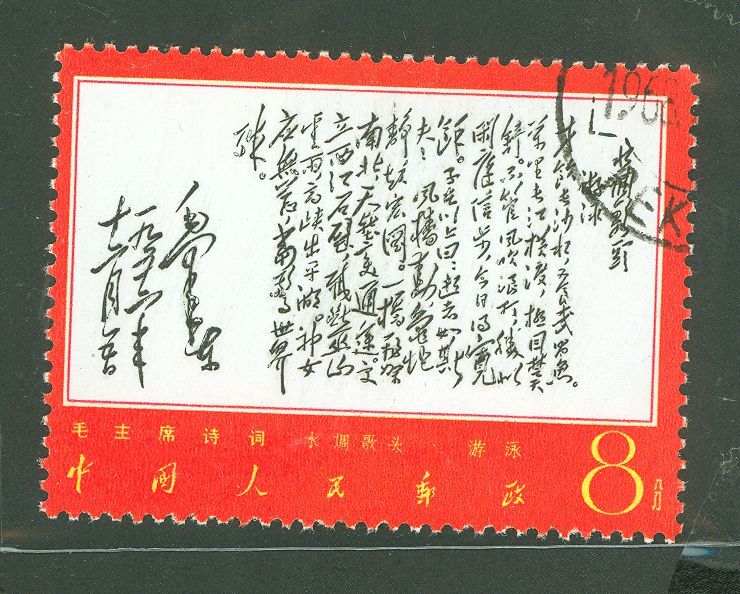 水调歌头
游泳
才饮长沙水，又食武昌鱼。
万里长江横渡，极目楚天
舒。不管风吹浪打，胜似
闲庭信步，今日得宽
馀。子在川上曰：逝者如斯
夫！风樯动，龟蛇
静，起宏图。一桥飞架
南北，天堑变通途。更
立西江石壁，截断巫山
云雨，高峡出平湖。神女
应无恙，当惊世界
殊。
毛泽东
一九五六年
十二月五日
毛主席诗词 水调歌头·游泳
中國人民郵政 8 八分